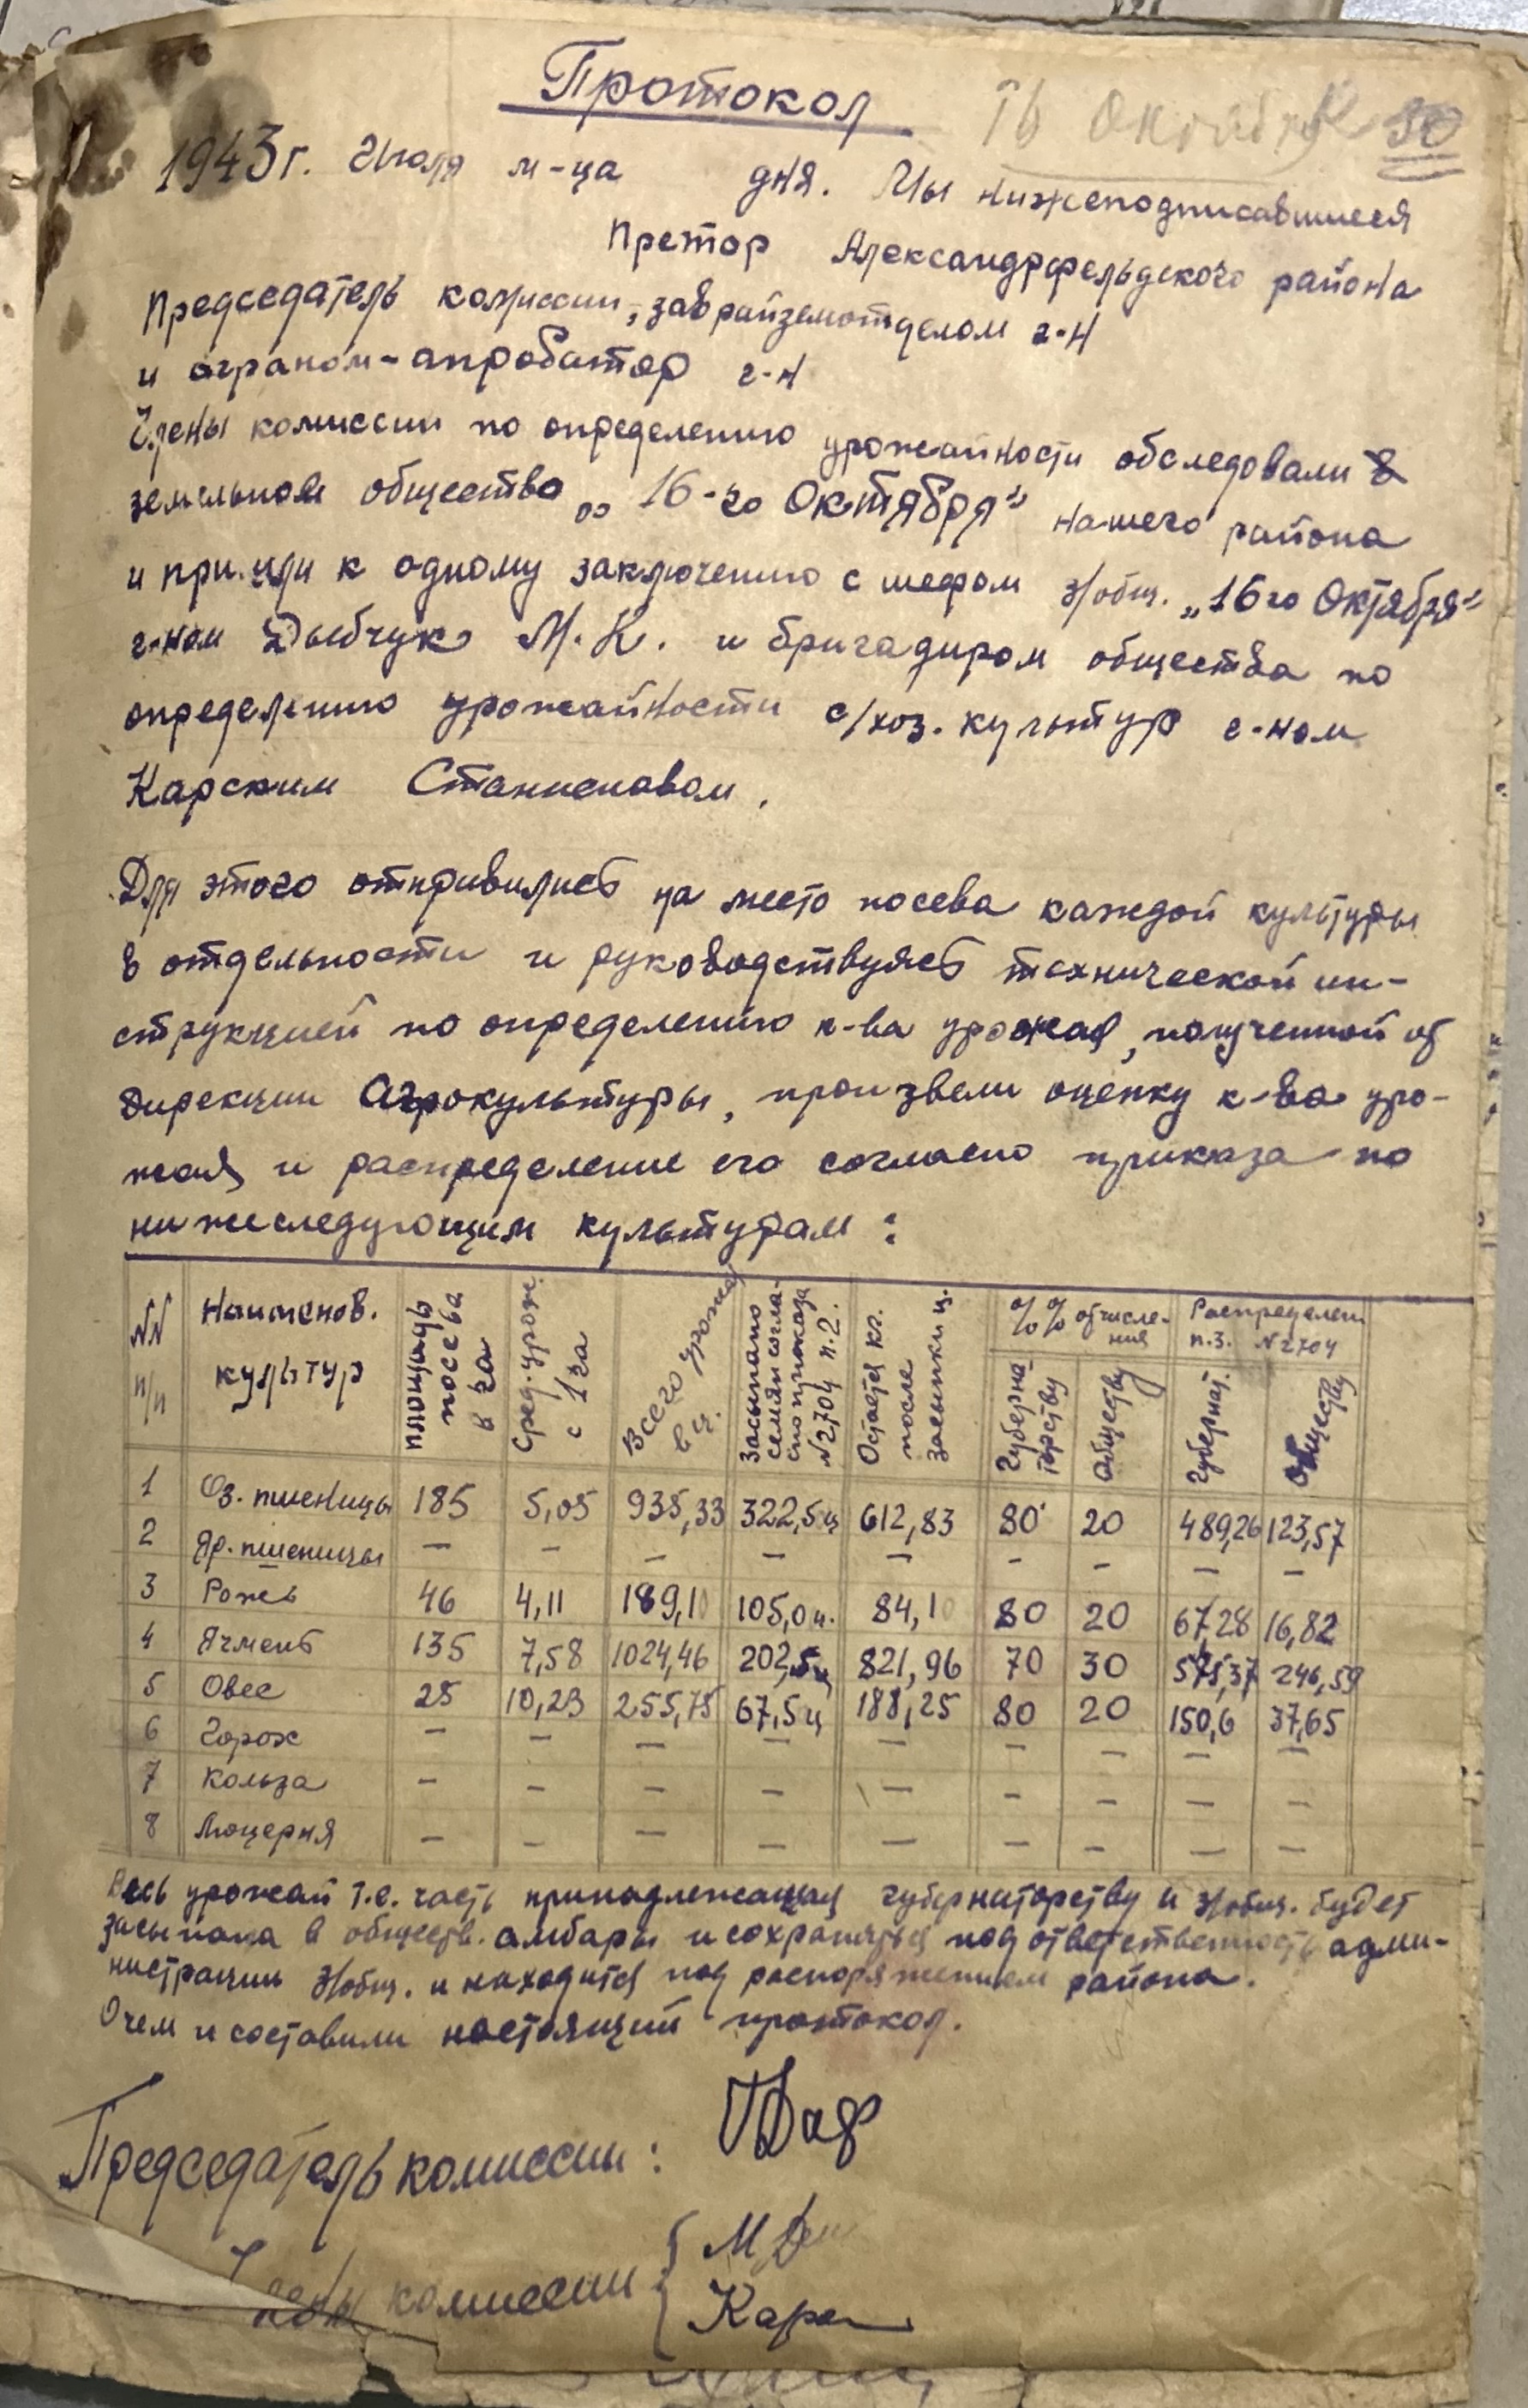 Протокол
16 Октября 80
1943 г. Июля м-ца дня. Мы нижеподписавшиеся
Претор Александрфельдского района
Председатель комиссии, заврайземотделом г-н
и аграном-апробатор г-н
Члены комиссии по определению урожайности обследовали в
земельном общество „16-го Октября" нашего района
и пришли к одному заключению с шефом з/общ. „16го Октября"
г-ном Дыбчук М.К. и бригадиром общества по
определению урожайности с/хоз. культур г-ном
Карским Станиславом.
Для этого отправились на место посева каждой культуры
в отдельности и руководствуясь технической ин-
струкцией по определению к-ва урожая, полученной от
дирекции Агрокультуры, произвели оценку к-ва уро-
жая и распределение его согласно приказа по
нижеследующим культурам:
NN п/п Наименов. культур площадь посева в га Сред. урож. с 1 га Всего урожая в ц. Засыпано семян согласно приказа N2704 п.2. Остаётся кг. после засыпки ц. %% отчисления Распределен п.3. N2704
Губернаторству обществу Губернат. обществу
1 Оз. пшеницы 185 5,05 935,33 322,5ц 612,83 80 20 489,26 123,57
2 Яр. пшеницы — — — — — — — — —
3 Рожь 46 4,11 189,10 105,0ц. 84,10 80 20 67,28 16,82
4 Ячмень 135 7,58 1024,46 202,5ц 821,96 70 30 575,37 246,59
5 Овес 25 10,23 255,75 67,5ц 188,25 80 20 150,6 37,65
6 Горох — — — — — — — — —
7 Кользa — — — — — — — — —
8 Люцерня — — — — — — — — —
Весь урожай т.е. часть принадлежащая губернаторству и з/общ. будет
засыпана в обществ. амбары и сохранятся под ответственность адми-
нистрации з/общ. и находится под распоряжением района.
О чем и составили настоящий протокол.
Председатель комиссии:
Члены комиссии